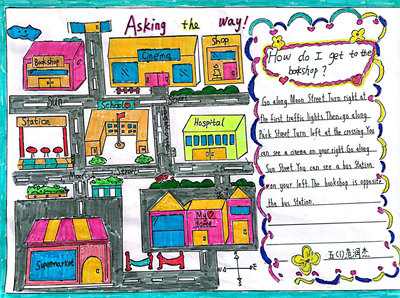 Asking the way!
Bookshop
Cinema
Shop
Sun
Street
School
Station
Hospital
Moon
Street
My home
Supermarket
E
How do I get to the
bookshop ?
Go along Moon Street. Turn right at
the first traffic lights. Then go along
Park Street. Turn left at the crossing. You
can see a cinema on your right. Go along
Sun Street. You can see a bus Station
on your left. The bookshop is opposite
the bus Station.
五(1)范润杰